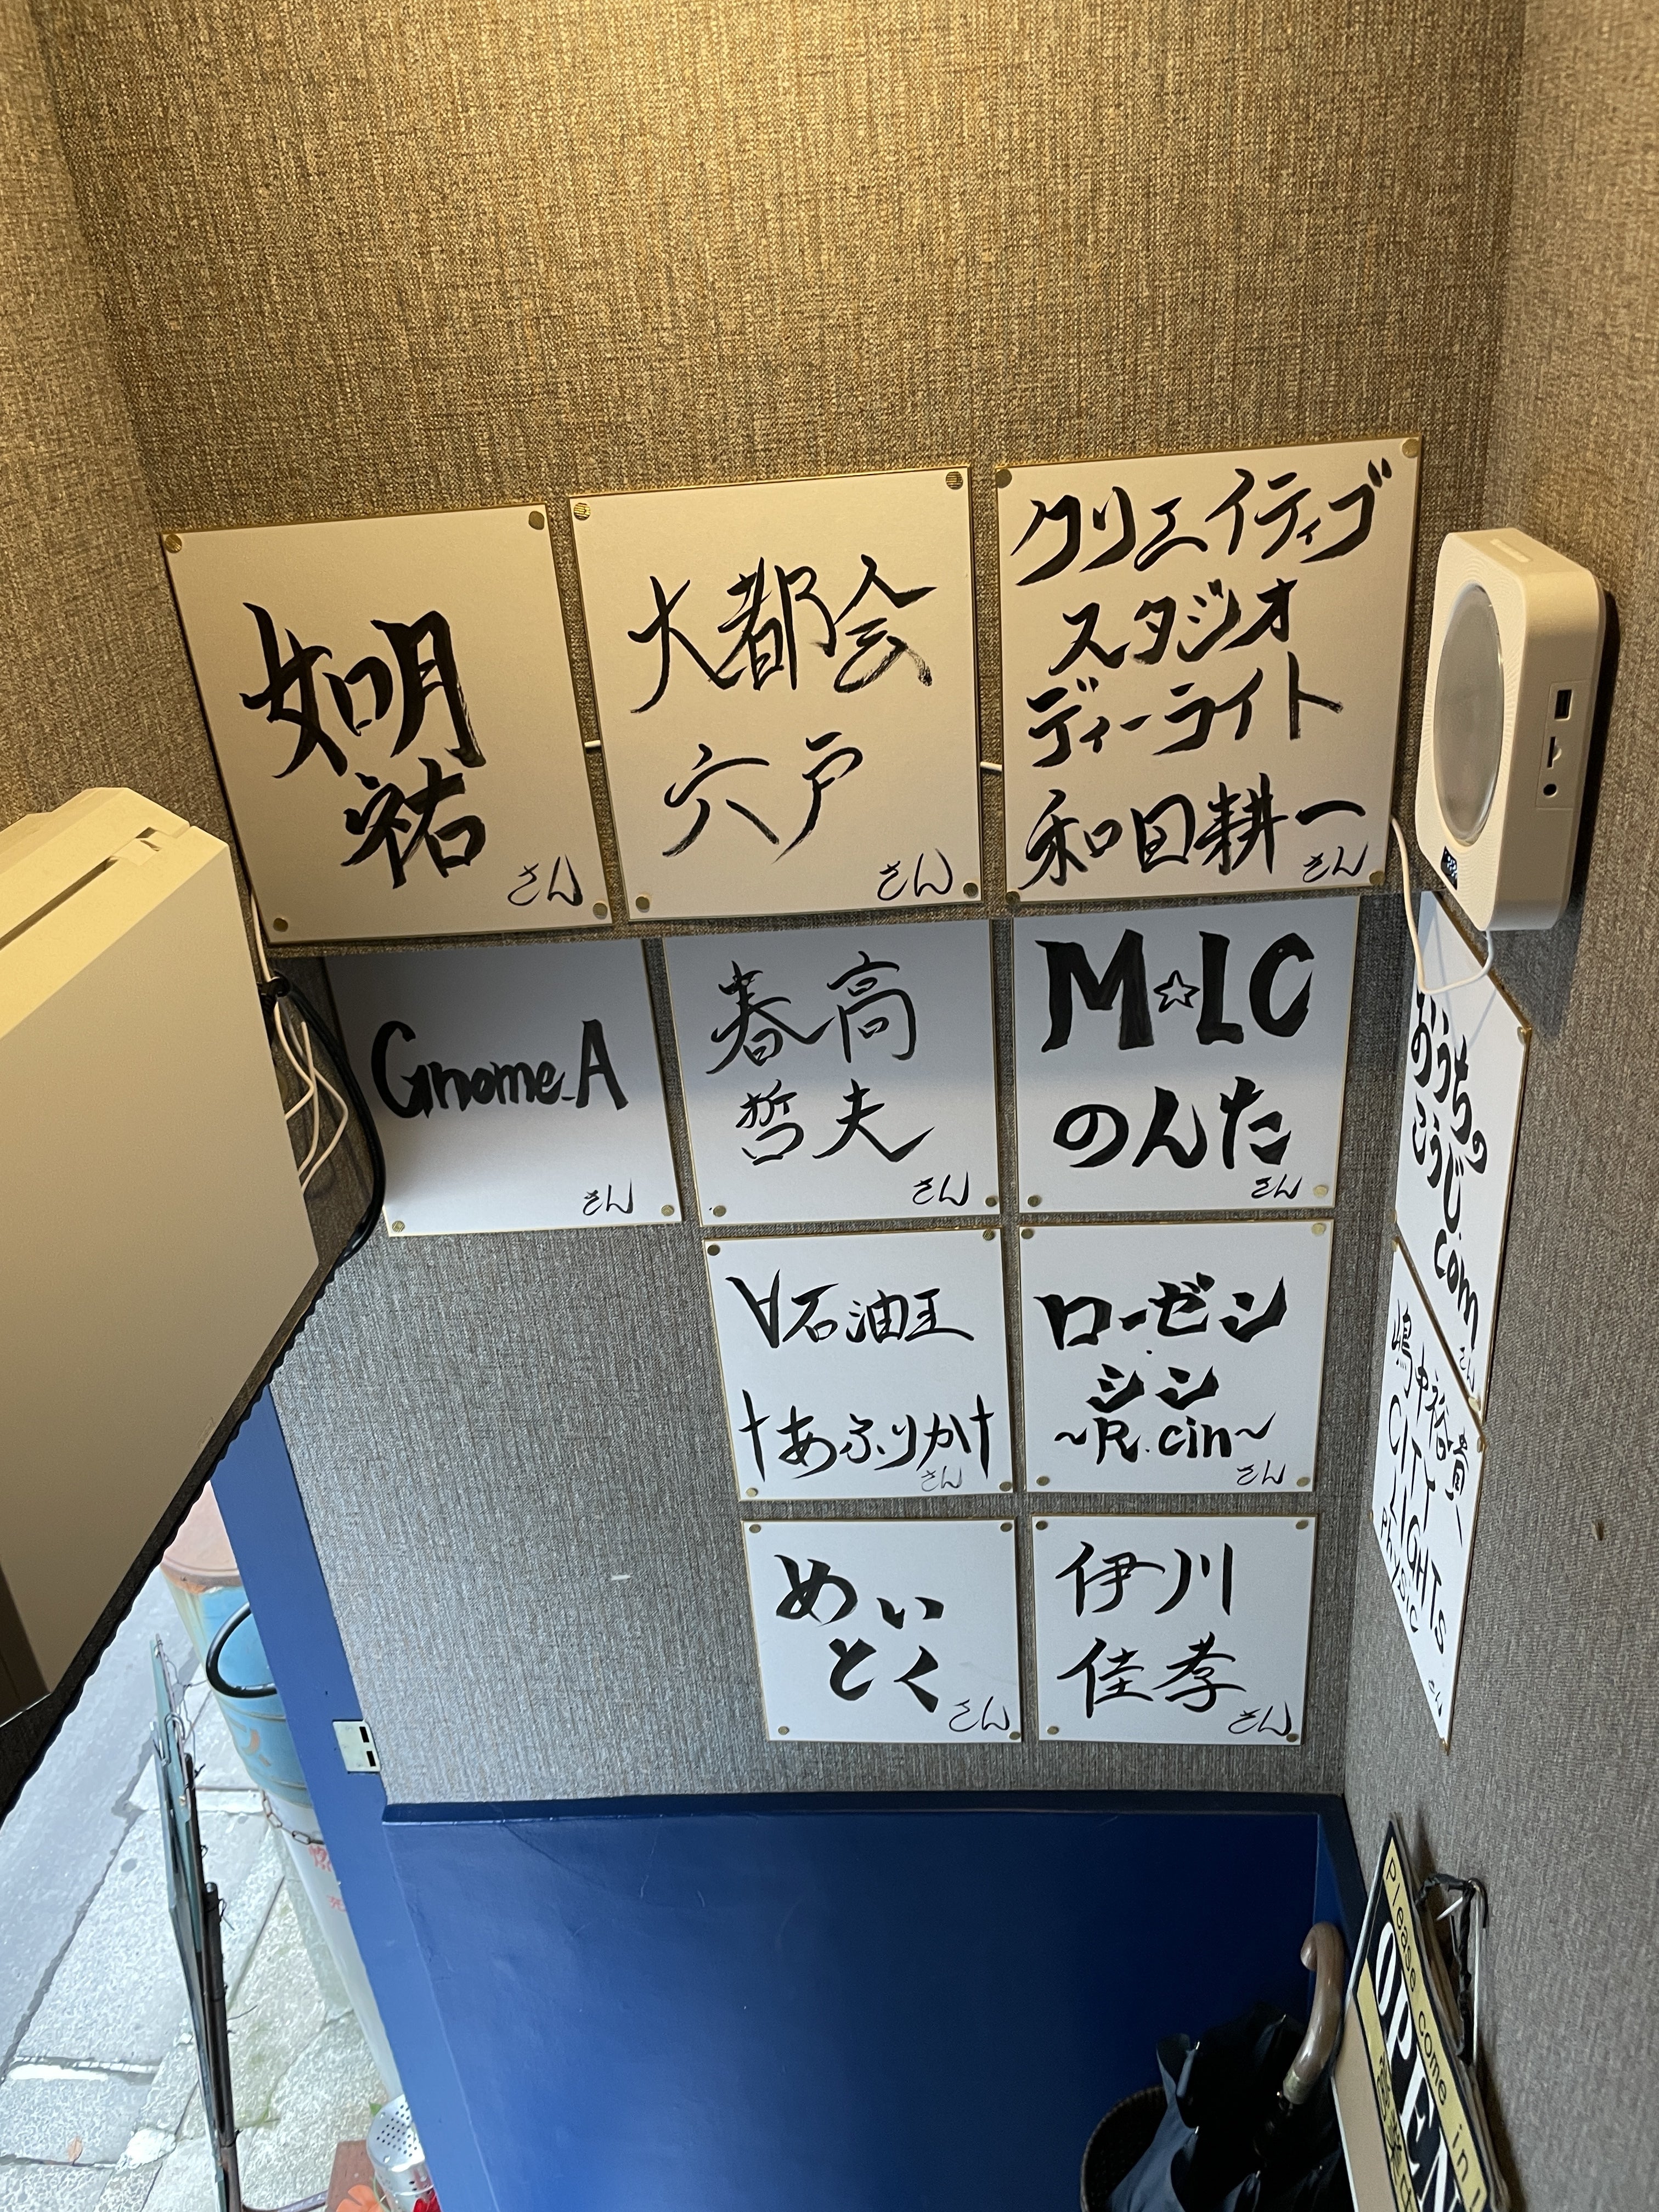 如月
祐
さん
大都会
穴戸
さん
クリエイティブ
スタジオ
ディーライト
和田耕一
さん
Gnome_A
さん
春高
哲夫
さん
M☆LC
のんた
さん
∀石油王
†あふりか†
さん
ローゼン
シン
~R.cin~
さん
めい
とく
さん
伊川
佳孝
さん
おうちの
こうじ.
com
さん
嶋中裕貴
CITY
LIGHTS
Physic
さん
Please come in!
OPEN
営業中